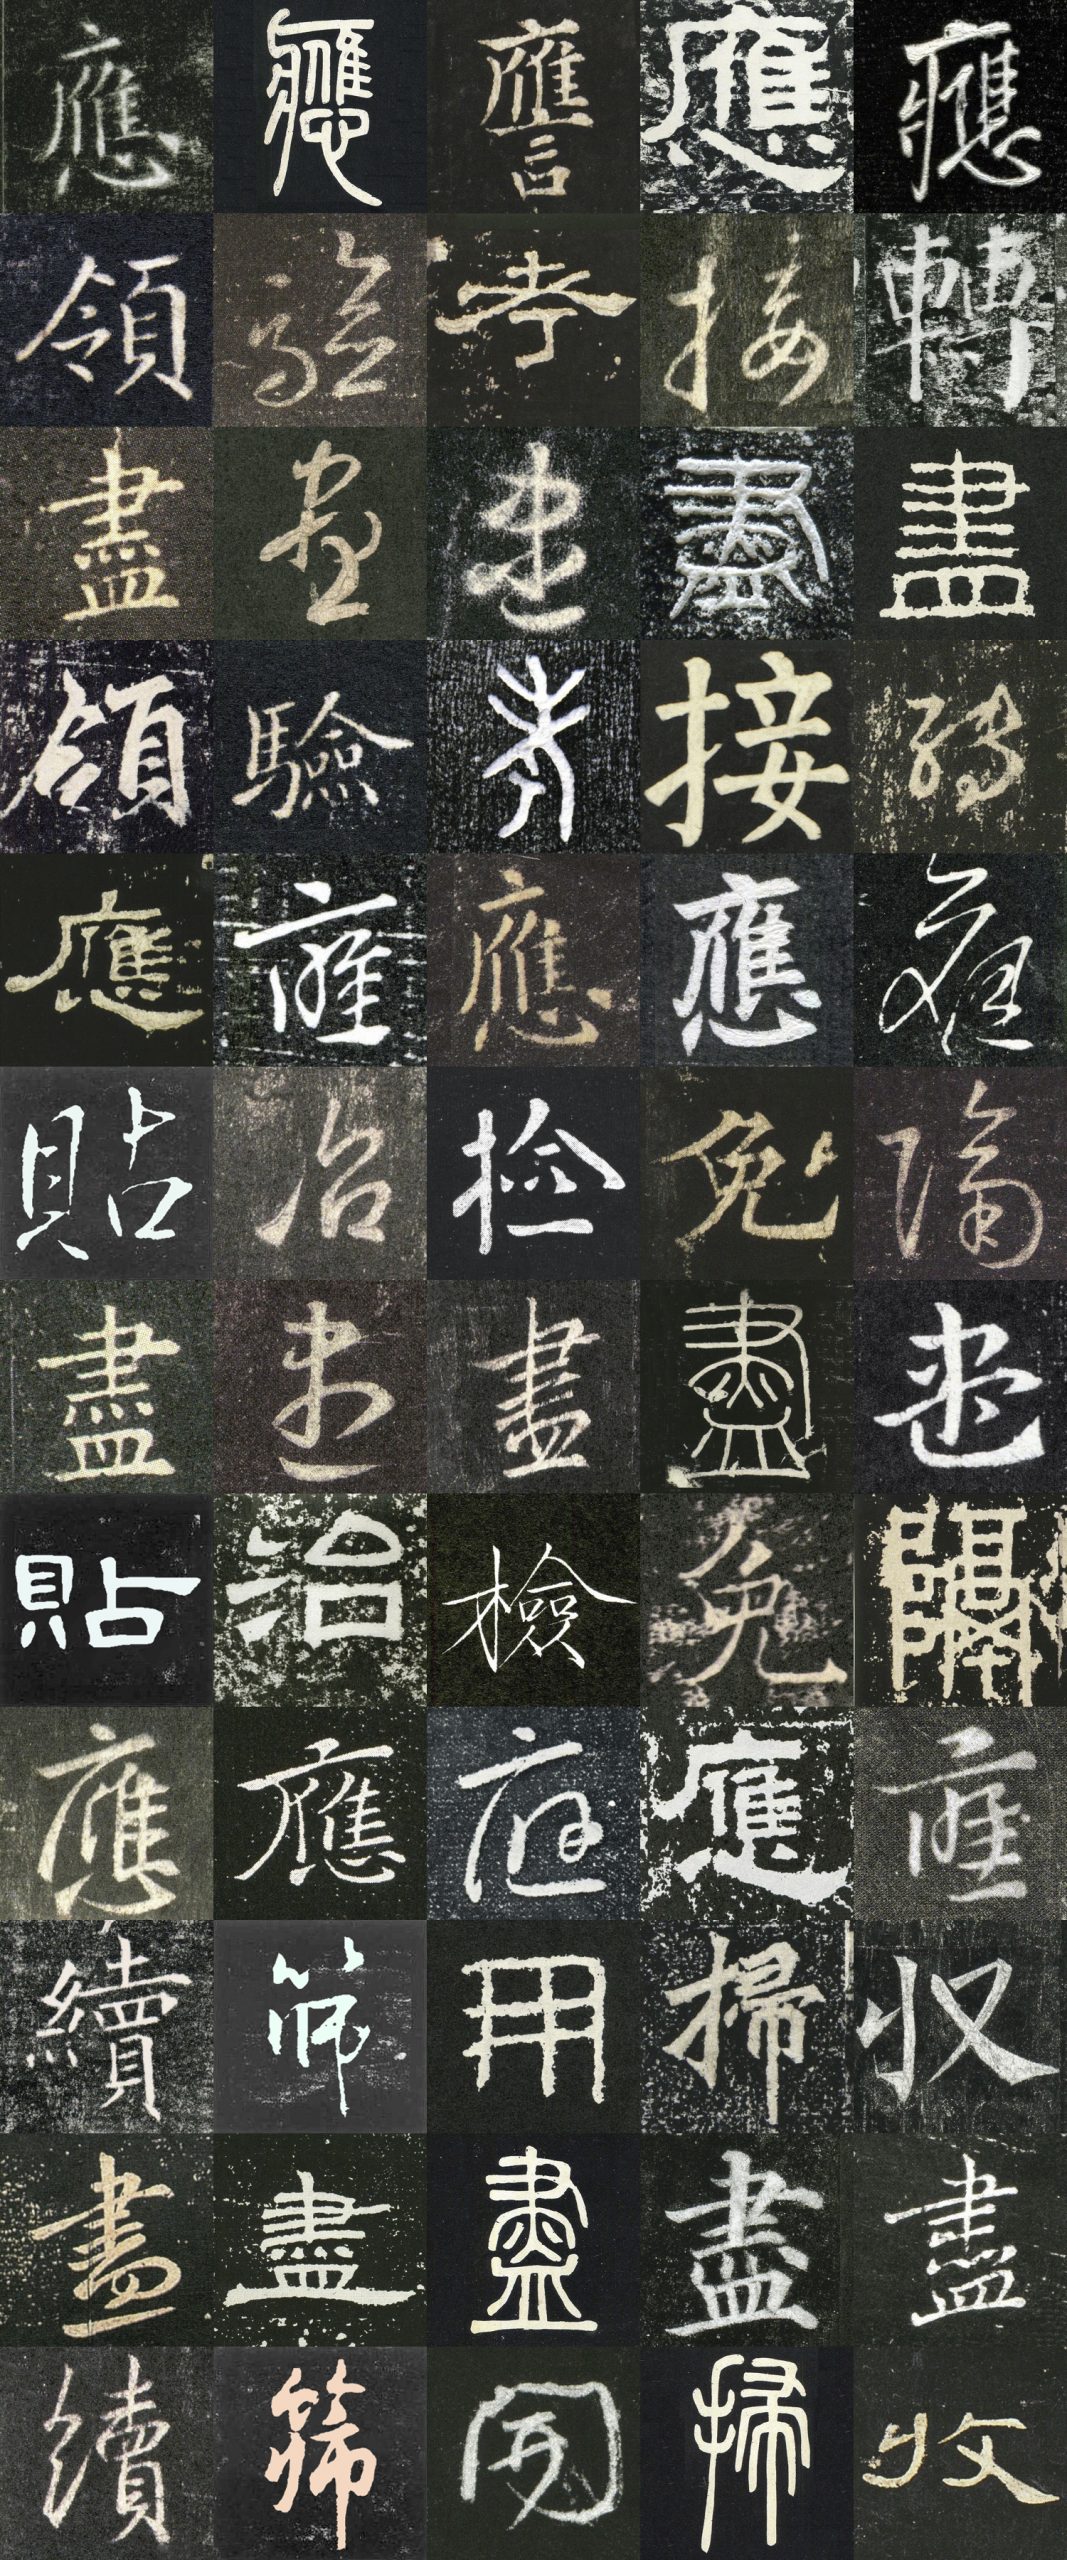 應應譍應應
領驗考接轉
盡盡盡盡盡
領驗考接轉
應應應應應
貼治檢免隔
盡盡盡盡盡
貼治檢免隔
應應應應應
續篩用掃收
盡盡盡盡盡
續篩用掃收